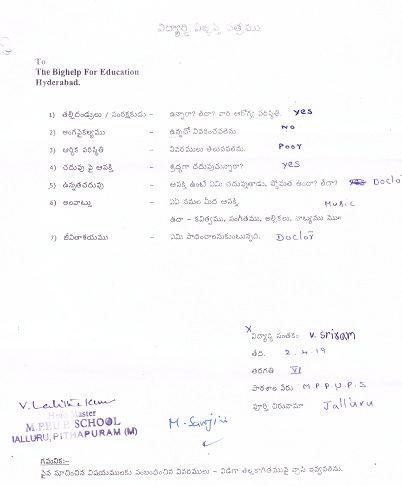 విద్యార్థి విజ్ఞప్తి పత్రము
To
The Bighelp For Education
Hyderabad.
1) తల్లిదండ్రులు / సంరక్షకుడు - ఉన్నారా? లేదా? వారి ఆరోగ్య పరిస్థితి. yes
2) అంగవైకల్యము - ఉన్నచో వివరించవలెను No
3) ఆర్థిక పరిస్థితి - వివరములు తెలుపవలెను. Poor
4) చదువు పై ఆసక్తి - శ్రద్ధగా చదువుచున్నారా? yes
5) ఉన్నతచదువు - ఆసక్తి ఉంటే ఏమి చదువుతాడు, స్తోమత ఉందా? లేదా? Doctor
6) అలవాట్లు - ఏఏ పనుల మీద ఆసక్తి. Music
ఉదా - కవిత్వము, సంగీతము, అల్లికలు, నాట్యము మొ॥
7) జీవితాశయము - ఏమి సాధించాలనుకుంటున్నది. Doctor
X విద్యార్థి సంతకం V. Sriram
తేది. 2-4-19
తరగతి VI
పాఠశాల పేరు M.P.P.U.P.S
పూర్తి చిరునామా Jalluru
Head Master
M.P.P.U.P. SCHOOL
JALLURU, PITHAPURAM (M)
M. Sarojini
గమనిక:-
పైన సూచించిన విషయములకు సంబంధించిన వివరములు - విడిగా తెల్లకాగితముపై వ్రాసి ఇవ్వవలెను.